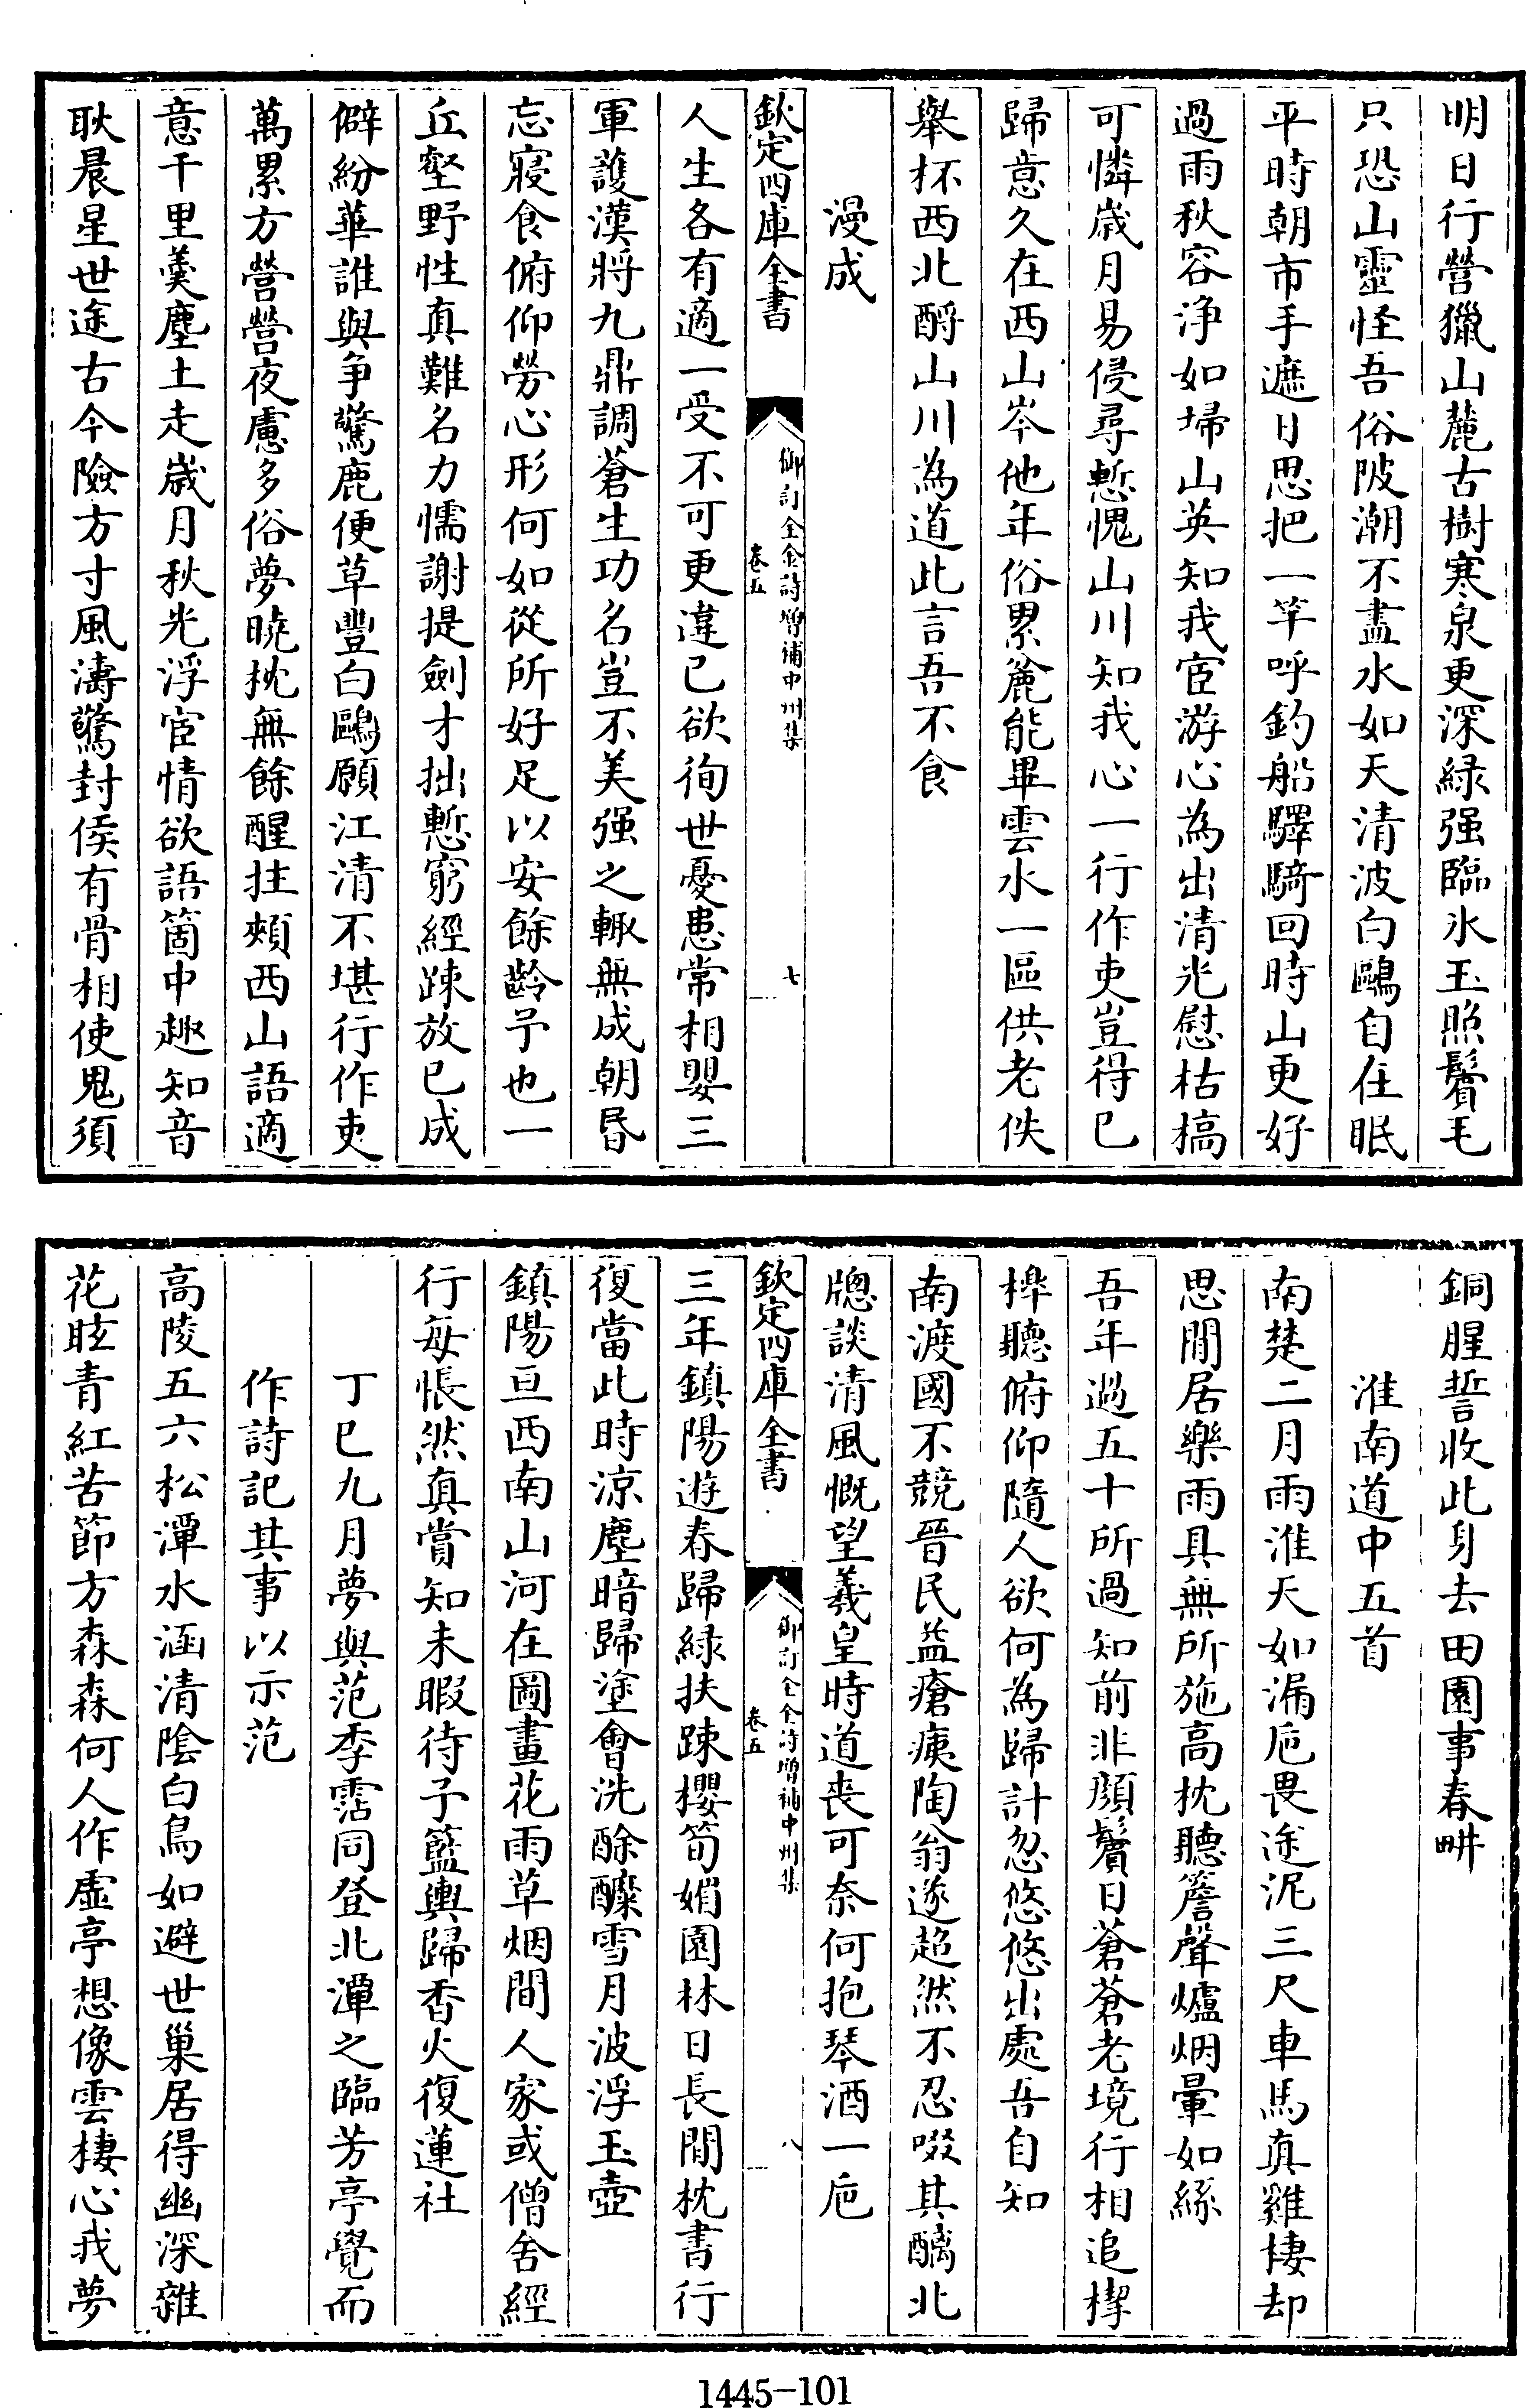 明日行營獵山麓古樹寒泉更深緑强臨氷玉照鬢毛
只恐山靈怪吾俗陂潮不盡水如天清波白鷗自在眠
平時朝市手遮日思把一竿呼釣船驛騎回時山更好
過雨秋容浄如埽山英知我宦游心為出清光慰枯槁
可憐歲月易侵尋慙愧山川知我心一行作吏豈得已
歸意久在西山岑他年俗累麄能畢雲水一區供老佚
舉杯西北酹山川為道此言吾不食
漫成
欽定四庫全書
御訂全金詩增補中州集
卷五
七
人生各有適一受不可更違已欲徇世憂患常相嬰三
軍護漢將九鼎調蒼生功名豈不美强之輙無成朝昬
忘寢食俯仰勞心形何如從所好足以安餘齡予也一
丘壑野性真難名力懦謝提劍才拙慙窮經疎放已成
僻紛華誰與爭驚鹿便草豐白鷗願江清不堪行作吏
萬累方營營夜慮多俗夢曉枕無餘醒拄頰西山語適
意千里羹塵土走歲月秋光浮宦情欲語箇中趣知音
耿晨星世途古今險方寸風濤驚封侯有骨相使鬼須
銅腥誓收此身去田園事春畊
淮南道中五首
南楚二月雨淮天如漏巵畏途泥三尺車馬真雞棲却
思閒居樂雨具無所施高枕聽簷聲爐烟暈如絲
吾年過五十所過知前非顔鬢日蒼蒼老境行相追楔
槔聽俯仰隨人欲何為歸計忽悠悠出處吾自知
南渡國不競晉民益瘡痍陶翁遂超然不忍啜其醨北
牕談清風慨望羲皇時道喪可奈何抱琴酒一巵
欽定四庫全書
御訂全金詩增補中州集
卷五
八
三年鎮陽遊春歸緑扶疎櫻筍媚園林日長閒枕書行
復當此時凉塵暗歸塗會洗酴醾雪月波浮玉壺
鎮陽亘西南山河在圖畫花雨草烟間人家或僧舍經
行每悵然真賞知未暇待予籃輿歸香火復蓮社
丁巳九月夢與范季霑同登北潭之臨芳亭覺而
作詩記其事以示范
高陵五六松潭水涵清隂白鳥如避世巢居得幽深雜
花眩青紅苦節方森森何人作虛亭想像雲棲心我夢
1445-101